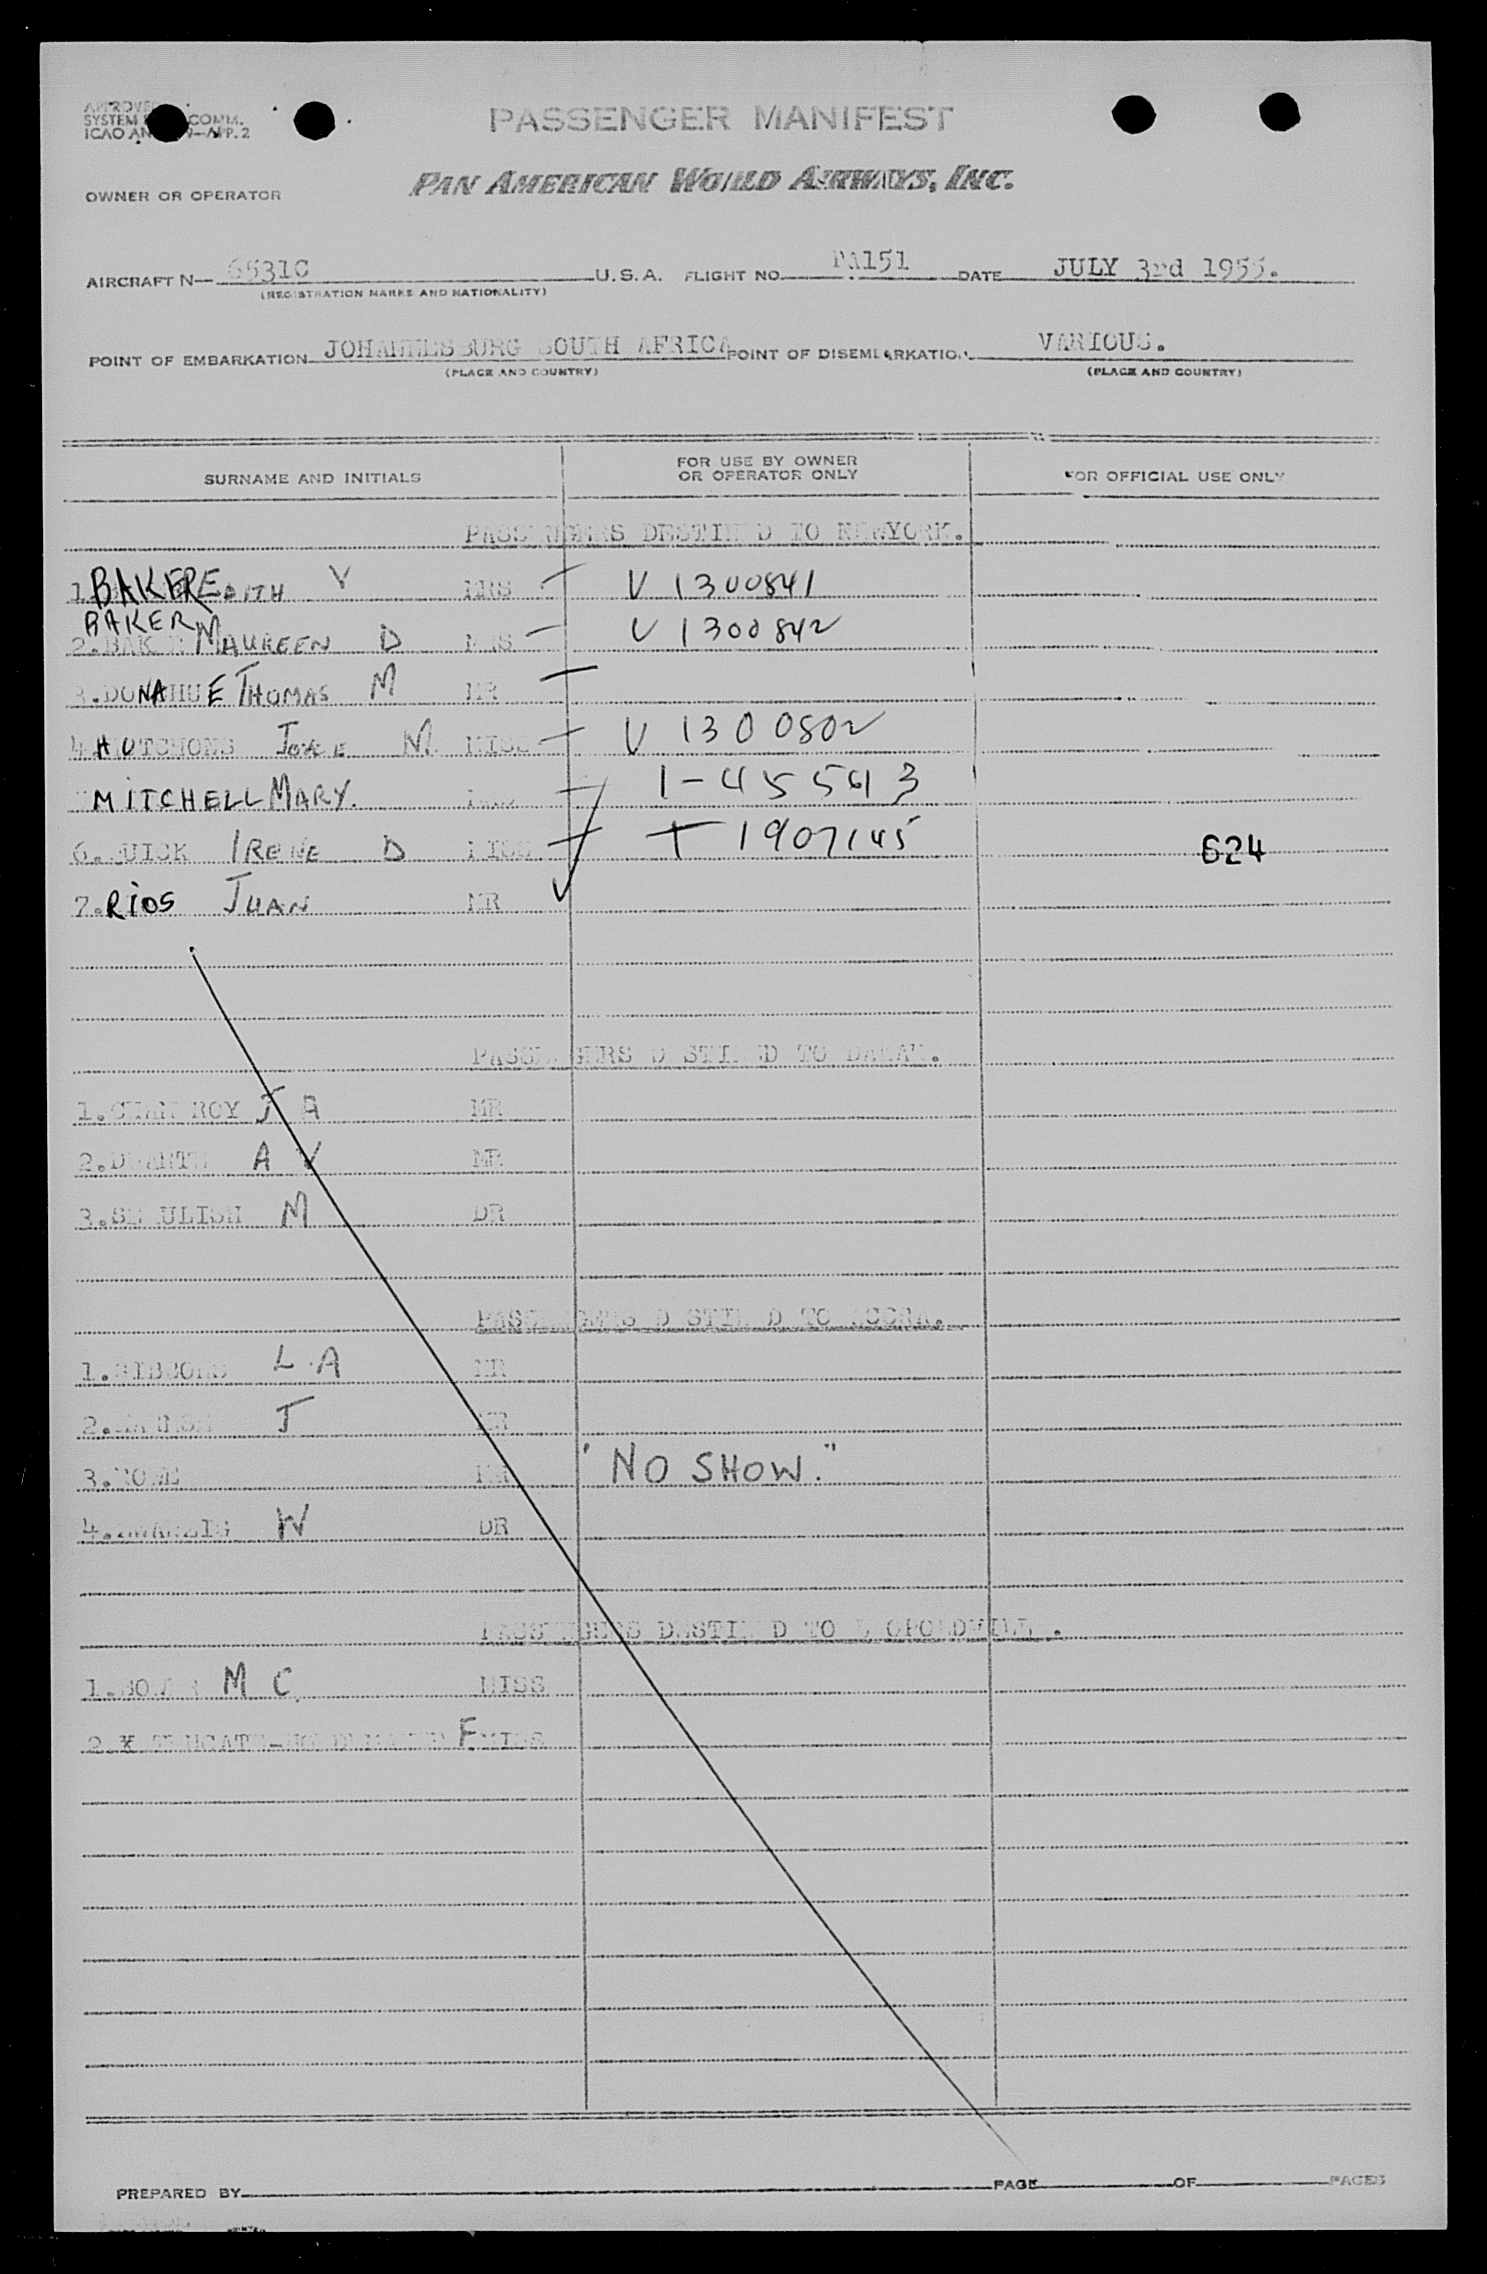 PASSENGER MANIFEST
PAN AMERICAN WORLD AIRWAYS, INC.
OWNER OR OPERATOR
AIRCRAFT N— 6531C U.S.A. FLIGHT NO. PA151 DATE JULY 3rd 1955.
(REGISTRATION MARKS AND NATIONALITY)
POINT OF EMBARKATION JOHANNESBURG SOUTH AFRICA POINT OF DISEMBARKATION VARIOUS.
(PLACE AND COUNTRY) (PLACE AND COUNTRY)
SURNAME AND INITIALS FOR USE BY OWNER OR OPERATOR ONLY FOR OFFICIAL USE ONLY
PASSENGERS DESTINED TO NEWYORK.
1. BAKER EDITH V MRS V 1300841
BAKER
2. MAUREEN D MRS V 1300842
3. DONAHUE THOMAS M MR
4. HUTCHONS M MISS V 1300802
MITCHELL MARY. 1-455
6. QUICK IRENE D MISS T 1907145 624
7. RIOS JUAN MR
PASSENGERS DESTINED TO DAKAR.
1. ROY J A MR
2. A V MR
3. M DR
PASSENGERS DESTINED TO ACCRA.
1. L A MR
2. J MR
3. MR "NO SHOW."
4. W DR
PASSENGERS DESTINED TO
1. M C. MISS
2. F MISS
PREPARED BY PAGE OF PAGES